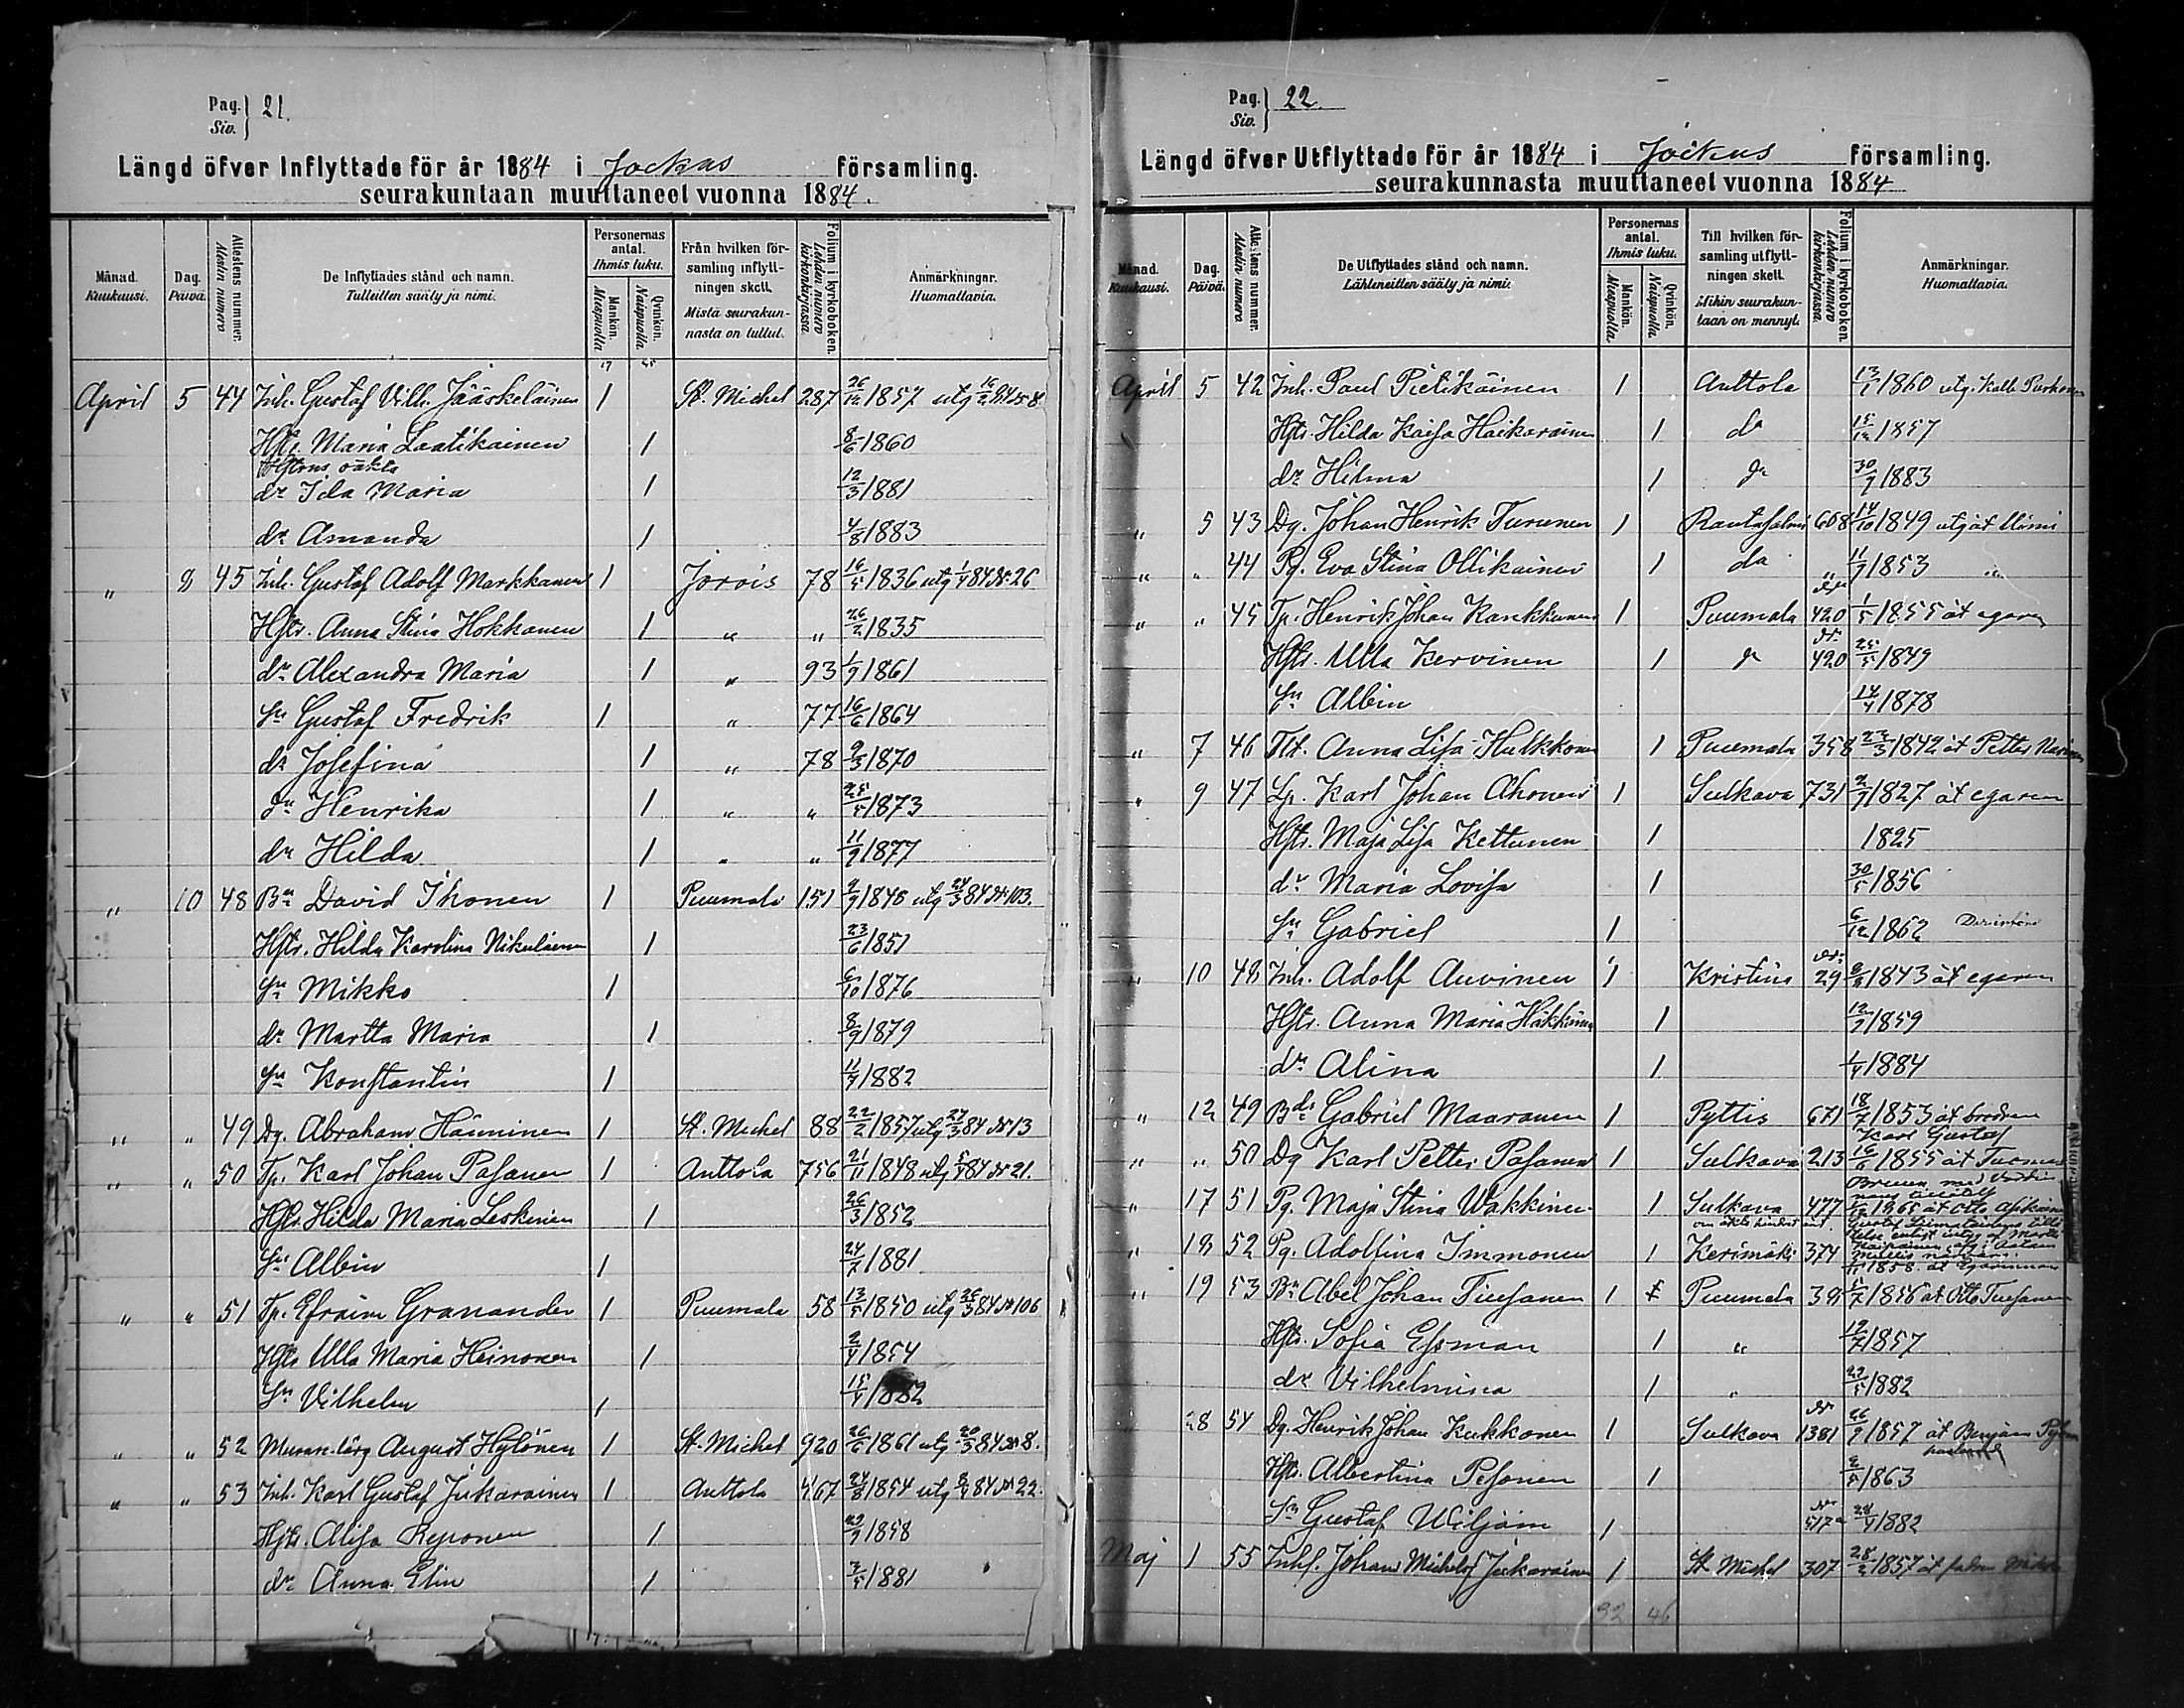 Pag. 21.
Siv.
Längd öfver Inflyttade för år 1884 i Jockas församling.
seurakuntaan muuttaneet vuonna 1884.
Månad. Kuukausi. Dag. Päivä. Attestens nummer. Alestin numero De Inflyttades stånd och namn. Tulleitten sääty ja nimi. Personernas antal. Ihmis luku. Mankön. Miespuolia Qvinkön. Naispuolia. Från hvilken församling inflyttningen skett. Mistä seurakunnasta on tullut. Folium i kyrkoboken. Lehden numero kirkonkirjassa. Anmärkningar. Huomattavia.
April 5 44 Inh. Gustaf Vilh. Jääskeläinen 1 St. Michel 287 26/12 1857 utg 16/2 84 № 8
Hstr. Maria Laatikainen 1 8/6 1860
Hstrns oäkta
dr Ida Maria 1 12/3 1881
dr Amanda 1 4/8 1883
" 8 45 Inh. Gustaf Adolf Markkanen 1 Jorois 78 16/5 1836 utg 1/4 84 № 26
Hstr. Anna Stina Hokkanen 1 " " 26/2 1835
dr Alexandra Maria 1 " 93 1/9 1861
Sn Gustaf Fredrik 1 " 77 16/6 1864
dr Josefina 1 " 78 9/3 1870
dr Henrika 1 " " 25/5 1873
dr Hilda 1 " " 11/9 1877
" 10 48 Bn David Ihonen 1 Puumala 151 9/9 1848 utg 24/3 84 № 103.
Hstr. Hilda Karolina Nikulainen 1 23/6 1851
Sn Mikko 1 6/10 1876
dr Martta Maria 1 8/9 1879
Sn Konstantin 1 11/7 1882
" " 49 Dg. Abraham Hänninen 1 St. Michel 88 22/2 1857 utg 27/3 84 № 13
" " 50 Tp. Karl Johan Pasanen 1 Anttola 756 21/11 1848 utg 5/4 84 № 21.
Hstr. Hilda Maria Leskinen 1 26/3 1852
Sn Albin 1 24/7 1881
" " 51 Tp. Efraim Granander 1 Puumala 58 13/5 1850 utg 26/3 84 № 106
Hstr Ulla Maria Heinonen 1 2/4 1854
Sn Vilhelm 1 15/4 1882
" " 52 Murare-lärg August Hylönen 1 St. Michel 920 26/6 1861 utg 20/3 84 № 8.
" " 53 Inh. Karl Gustaf Jukarainen 1 Anttola 467 24/8 1854 utg 8/4 84 № 22.
Hstr. Alisa Reponen 1 29/9 1858
dr Anna Elin 1 3/5 1881
Pag. 22.
Siv.
Längd öfver Utflyttade för år 1884 i Jockas församling.
seurakunnasta muuttaneet vuonna 1884
Månad. Kuukausi. Dag. Päivä. Attestens nummer. Alestin numero De Utflyttades stånd och namn. Lähteneitten sääty ja nimi. Personernas antal. Ihmis luku. Mankön. Miespuolia. Qvinkön. Naispuolia. Till hvilken församling utflyttningen skett. Mihin seurakuntaan on mennyt. Folium i kyrkoboken. Lehden numero kirkonkirjassa. Anmärkningar. Huomattavia.
April 5 42 Inh. Paul Pietikäinen 1 Anttola 13/1 1860 utg. Kalle
Hstr. Hilda Kaisa Haikarainen 1 do 15/12 1857
dr Hilma 1 do 30/9 1883
" 5 43 Dg. Johan Henrik Turunen 1 Rantasalmi 608 14/10 1849 utg åt
" " 44 Pg. Eva Stina Ollikainen 1 do " 11/9 1853 "
" " 45 Tp. Henrik Johan Karkkunen 1 Puumala 420 1/5 1855 åt egaren
Hstr. Ulla Kervinen 1 do 420 25/5 1849
Sn Albin 14/4 1878
" 7 46 Tlt. Anna Lisa Hulkkonen 1 Puumala 358 22/3 1842 åt Petter
" 9 47 Lp. Karl Johan Ahonen 1 Sulkava 731 2/9 1827 åt egaren
Hstr. Maja Lisa Kettunen 1 1825
dr Maria Lovisa 1 30/5 1856
Sn Gabriel 1 6/12 1862
" 10 48 Inh. Adolf Auvinen 1 Kristina 29 2/8 1843 åt egaren
Hstr. Anna Maria Häkkinen 1 12/9 1859
dr Alina 1 1/4 1884
" 12 49 Bdr Gabriel Maaranen 1 Pyttis 671 18/7 1853 åt brodren
Karl Gustaf
" " 50 Dg Karl Petter Pasanen 1 Sulkava 213 16/6 1855 åt Tuomas
" 17 51 Pg. Maja Stina Wakkinen 1 Sulkava 477 1865 åt Otto
" 18 52 Pg. Adolfina Immonen 1 Kerimäki 374 1858
" 19 53 Bn Abel Johan Tiusanen 1 Puumala 39 5/7 1856 åt Otto Tiusanen
Hstr. Sofia Essman 1 " 12/7 1857
dr Vilhelmina 1 " 22/5 1882
28 54 Dg. Henrik Johan Kukkonen 1 Sulkava 1381 26/9 1857 åt Benjam
Hstr. Albertina Pesonen 1 2/5 1863
Sn Gustaf Wiljam 1 517 24/4 1882
Maj 1 55 Inhs. Johan Michelsf Jukarainen 1 St. Michel 307 28/2 1857 åt fadren
32 46